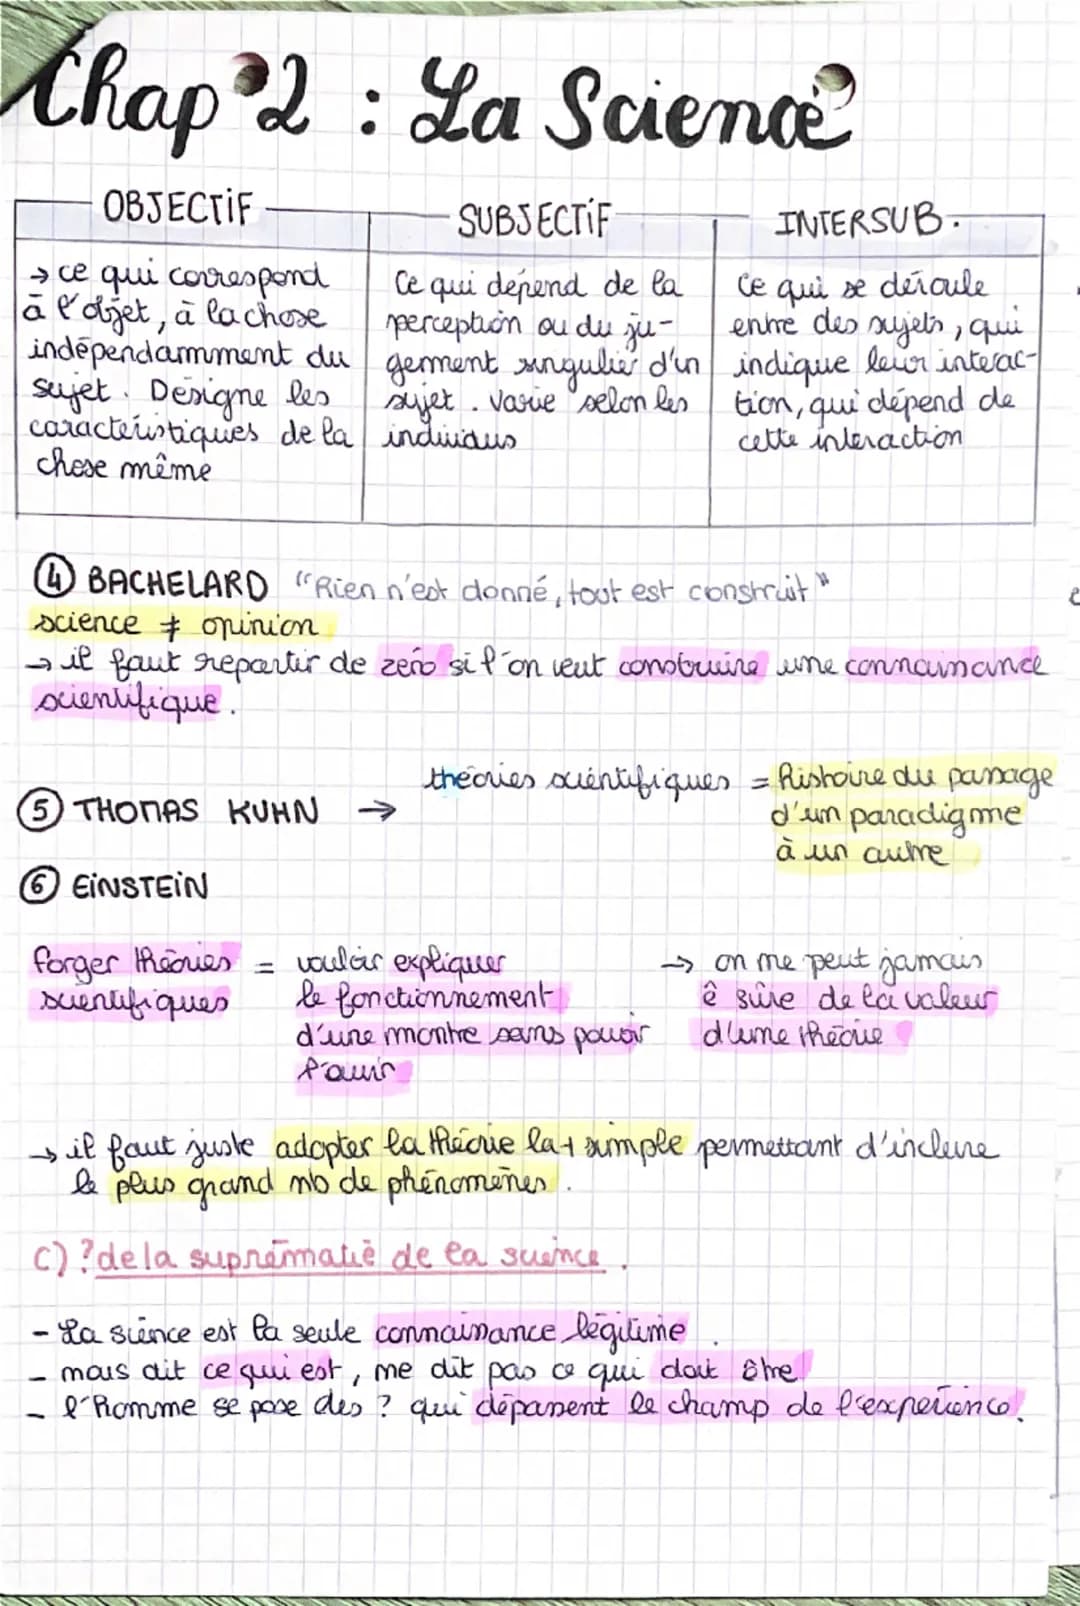 Chap 2 : La Science
OBJECTIF
SUBJECTIF
INTERSUB.
→ ce qui correspond
à l'objet, à la chose
indépendamment du
sujet. Désigne les
caractéristiques de la
chose même
Ce qui dépend de la
perception ou du ju-
gement singulier d'un
sujet. Varie selon les
individus
Ce qui se déroule
entre des sujets, qui
indique leur interac-
tion, qui dépend de
cette interaction
④ BACHELARD "Rien n'est donné, tout est construit"
science ≠ opinion
→ il faut repartir de zéro si l'on veut construire une connaissance
scientifique.
⑤ THOMAS KUHN →
théories scientifiques = histoire du passage
d'un paradigme
à un autre
⑥ EINSTEIN
forger théories
scientifiques
= vouloir expliquer
le fonctionnement
d'une montre sans pouvoir
l'ouvrir
→ on ne peut jamais
ê sûre de la valeur
d'une théorie
→ il faut juste adopter la théorie la + simple permettant d'inclure
le plus grand nb de phénomènes.
C) ? de la suprématie de la science.
- La science est la seule connaissance légitime.
- mais dit ce qui est, ne dit pas ce qui doit être
- l'Homme se pose des ? qui dépassent le champ de l'expérience.